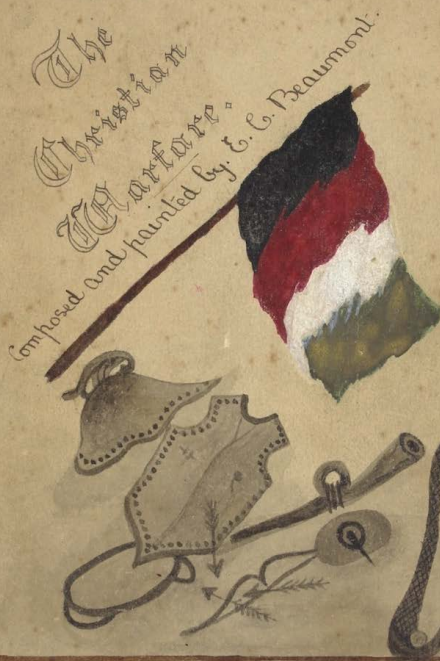 The
Christian
Warfare.
Composed and painted by. E. C. Beaumont.